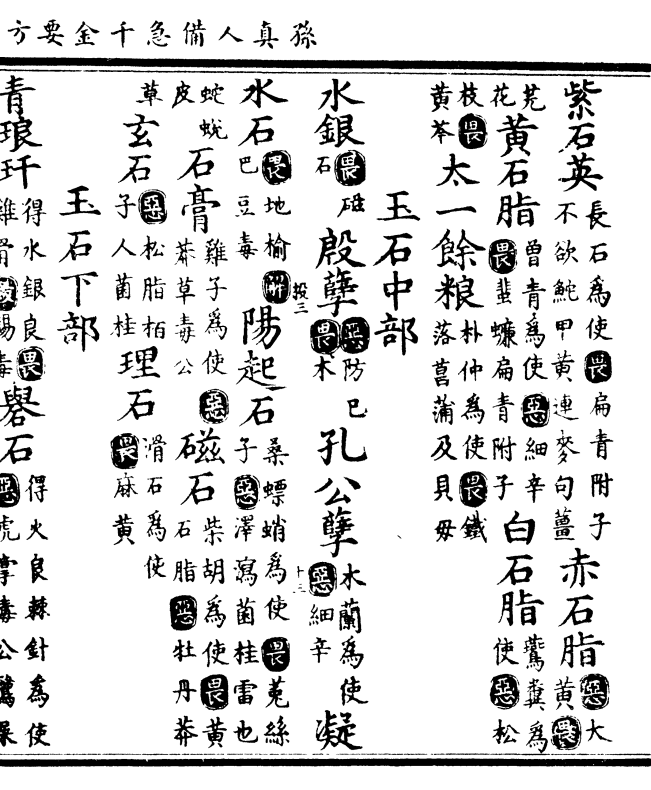 孫真人備急千金要方
紫石英長石為使畏扁青附子不欲鮀甲黃連麥句薑赤石脂惡大黃畏
芫花黃石脂曾青為使惡細辛畏蜚蠊扁青附子白石脂鷰糞為使惡松
枝畏黃芩太一餘粮朴仲為使畏鐵落菖蒲及貝母
玉石中部
水銀畏磁石殷孽惡防巳畏木孔公孽木蘭為使惡細辛凝
水石畏地榆解巴豆毒陽起石桑螵蛸為使畏菟絲子惡澤瀉菌桂雷也
蛇蛻皮石膏雞子為使惡莽草毒公磁石柴胡為使畏黃石脂惡牡丹莽
草玄石惡松脂栢子人菌桂理石滑石為使畏麻黃
玉石下部
青琅玕得水銀良畏雞骨殺錫毒礜石得火良棘針為使惡虎掌毒公鶩屎